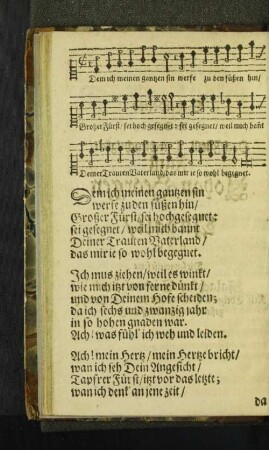 Dem ich meinen gantzen sin werfe zu den füßen hin/
Großer Fürst/ sei hoch gesegnet: sei gesegnet/ weil mich bañt
Deiner Trauten Vaterland/ das mir ie so wohl begegnet.
Dem ich meinen gantzen sin
werfe zu den füßen hin/
Großer Fürst/ sei hochgesegnet:
sei gesegnet/ weil mich bannt
Deiner Trauten Vaterland/
das mir ie so wohl begegnet.
Ich mus ziehen/ weil es winkt/
wie mich itzt von ferne dünkt/
und von Deinem Hofe scheiden;
da ich sechs und zwanzig jahr
in so hohen gnaden war.
Ach! was fühl' ich weh und leiden.
Ach! mein Hertz/ mein Hertze bricht/
wan ich seh Dein Angesicht/
Tapfrer Fürst/ itzt vor das letzte;
wan ich denk' an jene zeit/
da